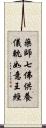 藥師七佛供養
儀軌如意王經